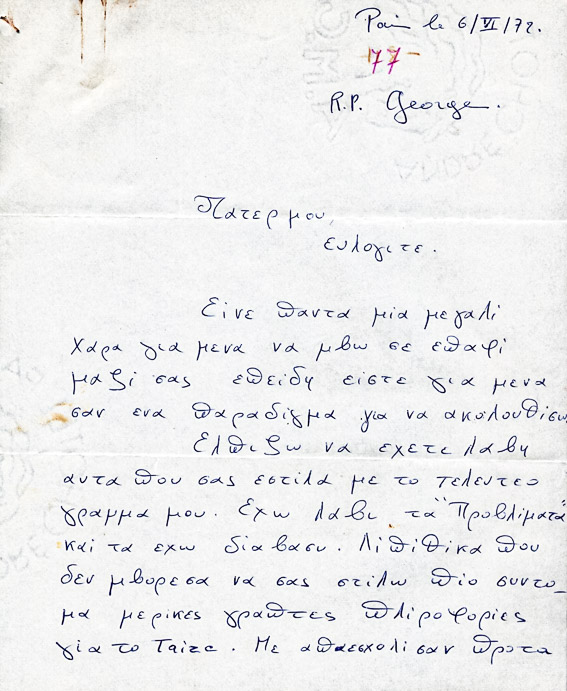 le 6/VI/72.
77
R.P. George.
Πατερ μου,
ευλογιτε.
Είνε παντα μία μεγαλί
χάρα για μενα να μβω σε επαφί
μαζί σας επείδη είστε για μενα
σαν ενα παραδίγμα για να ακολουθίσω
Ελπιζω να εχετε λάβη
αυτα που σας εστιλά με το τελευτεο
γραμμα μου. Έχω λάβι τα "Προβλίματά"
και τα εχω διαβασυ. Λιπίθικα που
δεν μβορεσα να σας στίλω πίο συντο_
μα μερικες γραπτες πλίροφορίες
γία το Taizé. Με απαεσχολί σαν πρoτα